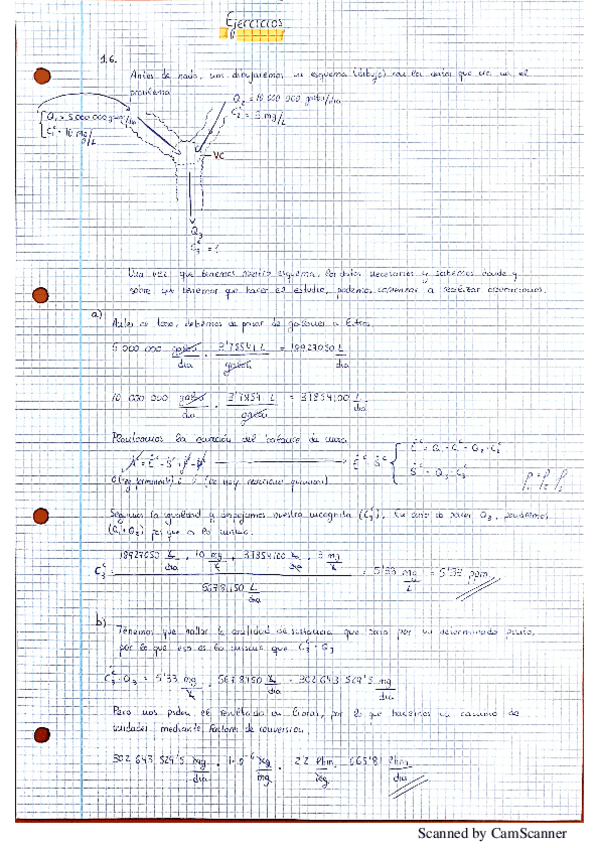 Ejercicios
1.6.
Antes de nada, un dibujaremos un esquema (dibujo) con los datos que nos da el
problema
Q₁ = 5 000 000 galos/día
C₁ᶜ = 10 mg/L
Q₂ = 10 000 000 galos/día
C₂ᶜ = 3 mg/L
VC
Q₃
C₃ᶜ = ?
Una vez que tenemos nuestro esquema, los datos necesarios y sabemos donde y
sobre que tenemos que hacer el estudio, podemos comenzar a realizar operaciones.
a)
Antes de todo, debemos de pasar de galones a litros.
5 000 000 galos/día · 3'7854 L/galos = 18927050 L/día
10 000 000 galos/día · 3'7854 L/galos = 37854100 L/día
Planteamos la ecuación del balance de masa
Ė = Q₁ · C₁ᶜ + Q₂ · C₂ᶜ
Ṡ = Q₃ · C₃ᶜ
0 (rég. permanente) (no hay reacción química)
Seguimos la igualdad y despejamos nuestra incógnita (C₃ᶜ). En caso de Q₃, sumaremos
(Q₁ + Q₂) porque es lo mismo.
C₃ᶜ = 18927050 L/día · 10 mg/L + 37854100 L/día · 3 mg/L
56781150 L/día
= 5'33 mg/L = 5'33 ppm
b)
Tenemos que hallar la cantidad de sustancia que pasa por un determinado punto,
por lo que eso es lo mismo que C₃ · Q₃
C₃ᶜ · Q₃ = 5'33 mg/L · 56781150 L/día = 302 643 529'5 mg/día
Pero nos piden el resultado en libras, por lo que hacemos un cambio de
unidades mediante factores de conversión.
302 643 529'5 mg/día · 1·10⁻⁶ kg/mg · 2'2 lbm/kg = 665'81 lbm/día
Scanned by CamScanner